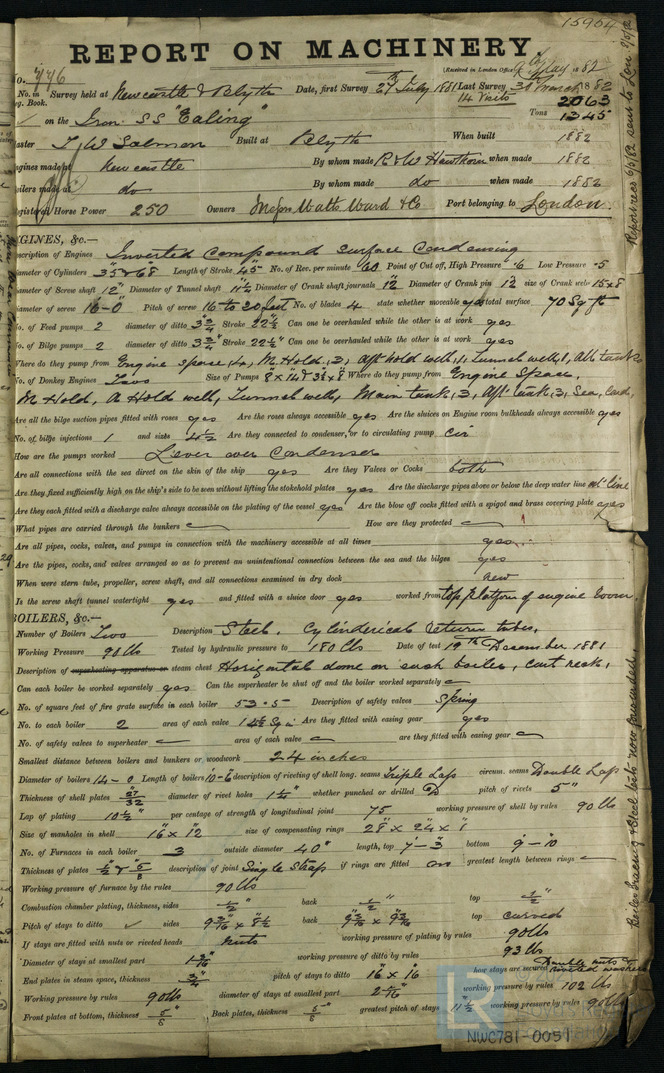 15904
REPORT ON MACHINERY
(Received in London Office May 1882
No. 776
No. in Survey held at Newcastle & Blyth Date, first Survey 27 July 1881 Last Survey 31 March 1882
Reg. Book. 14 Visits 2063
on the Iron SS "Ealing" Tons 1345
Master T W Salmon Built at Blyth When built 1882
Engines made at Newcastle By whom made R & W Hawthorn when made 1882
Boilers made at do By whom made do when made 1882
Registered Horse Power 250 Owners Messrs Watts Ward & Co Port belonging to London
ENGINES, &c.—
Description of Engines Inverted Compound Surface Condensing
Diameter of Cylinders 35" & 68" Length of Stroke 45" No. of Rev. per minute 60 Point of Cut off, High Pressure .6 Low Pressure .5
Diameter of Screw shaft 12" Diameter of Tunnel shaft 11½ Diameter of Crank shaft journals 12" Diameter of Crank pin 12 size of Crank webs 15 x 8
Diameter of screw 16-0 Pitch of screw 16 to 20 feet No. of blades 4 state whether moveable yes total surface 70 Sq ft
No. of Feed pumps 2 diameter of ditto 3¾ Stroke 22½" Can one be overhauled while the other is at work yes
No. of Bilge pumps 2 diameter of ditto 3¾" Stroke 22½" Can one be overhauled while the other is at work yes
Where do they pump from Engine space, 4, M Hold, 3, Aft hold well, 1, Tunnel well, 1, All tanks
No. of Donkey Engines Two Size of Pumps Where do they pump from Engine Space,
M Hold, A Hold well, Tunnel well, Main tank, 3, Aft tank, 3, Sea,
Are all the bilge suction pipes fitted with roses yes Are the roses always accessible yes Are the sluices on Engine room bulkheads always accessible yes
No. of bilge injections 1 and sizes 4½ Are they connected to condenser, or to circulating pump cir
How are the pumps worked Lever over Condenser
Are all connections with the sea direct on the skin of the ship yes Are they Valves or Cocks both
Are they fixed sufficiently high on the ship's side to be seen without lifting the stokehold plates yes Are the discharge pipes above or below the deep water line at line
Are they each fitted with a discharge valve always accessible on the plating of the vessel yes Are the blow off cocks fitted with a spigot and brass covering plate yes
What pipes are carried through the bunkers — How are they protected —
Are all pipes, cocks, valves, and pumps in connection with the machinery accessible at all times yes
Are the pipes, cocks, and valves arranged so as to prevent an unintentional connection between the sea and the bilges yes
When were stern tube, propeller, screw shaft, and all connections examined in dry dock new
Is the screw shaft tunnel watertight yes and fitted with a sluice door yes worked from top platform of engine room.
BOILERS, &c.—
Number of Boilers Two Description Steel. Cylinderical return tubes,
Working Pressure 90 lbs Tested by hydraulic pressure to 180 lbs Date of test 19th December 1881
Description of superheating apparatus or steam chest Horizontal dome on each boiler, cast neck,
Can each boiler be worked separately yes Can the superheater be shut off and the boiler worked separately —
No. of square feet of fire grate surface in each boiler 53.5 Description of safety valves Spring
No. to each boiler 2 area of each valve Are they fitted with easing gear yes
No. of safety valves to superheater — area of each valve — are they fitted with easing gear —
Smallest distance between boilers and bunkers or woodwork 24 inches
Diameter of boilers 14-0 Length of boilers 10-6 description of riveting of shell long. seams Triple Lap circum. seams Double Lap
Thickness of shell plates 27/32 diameter of rivet holes 1¼" whether punched or drilled pitch of rivets 5"
Lap of plating 10½" per centage of strength of longitudinal joint 75 working pressure of shell by rules 90 lbs
Size of manholes in shell 16" x 12 size of compensating rings 28" x 24" x
No. of Furnaces in each boiler 3 outside diameter 40" length, top 7'-3" bottom 9'-10
Thickness of plates ½" & ⅝ description of joint Single Strap if rings are fitted on greatest length between rings —
Working pressure of furnace by the rules 90 lbs
Combustion chamber plating, thickness, sides ½" back ½" top ½"
Pitch of stays to ditto sides 9 3/16 x 8½ back 9 3/16 x 9 3/16 top curved
If stays are fitted with nuts or riveted heads nuts working pressure of plating by rules 90 lbs
Diameter of stays at smallest part 1 5/16" working pressure of ditto by rules 93 lbs
End plates in steam space, thickness ¾" pitch of stays to ditto 16" x 16 how stays are secured Double nuts & riveted washers
Working pressure by rules 90 lbs diameter of stays at smallest part working pressure by rules 102 lbs
Front plates at bottom, thickness ⅝" Back plates, thickness ⅝" greatest pitch of stays 11½ working pressure by rules 90 lbs
NWC781-0051